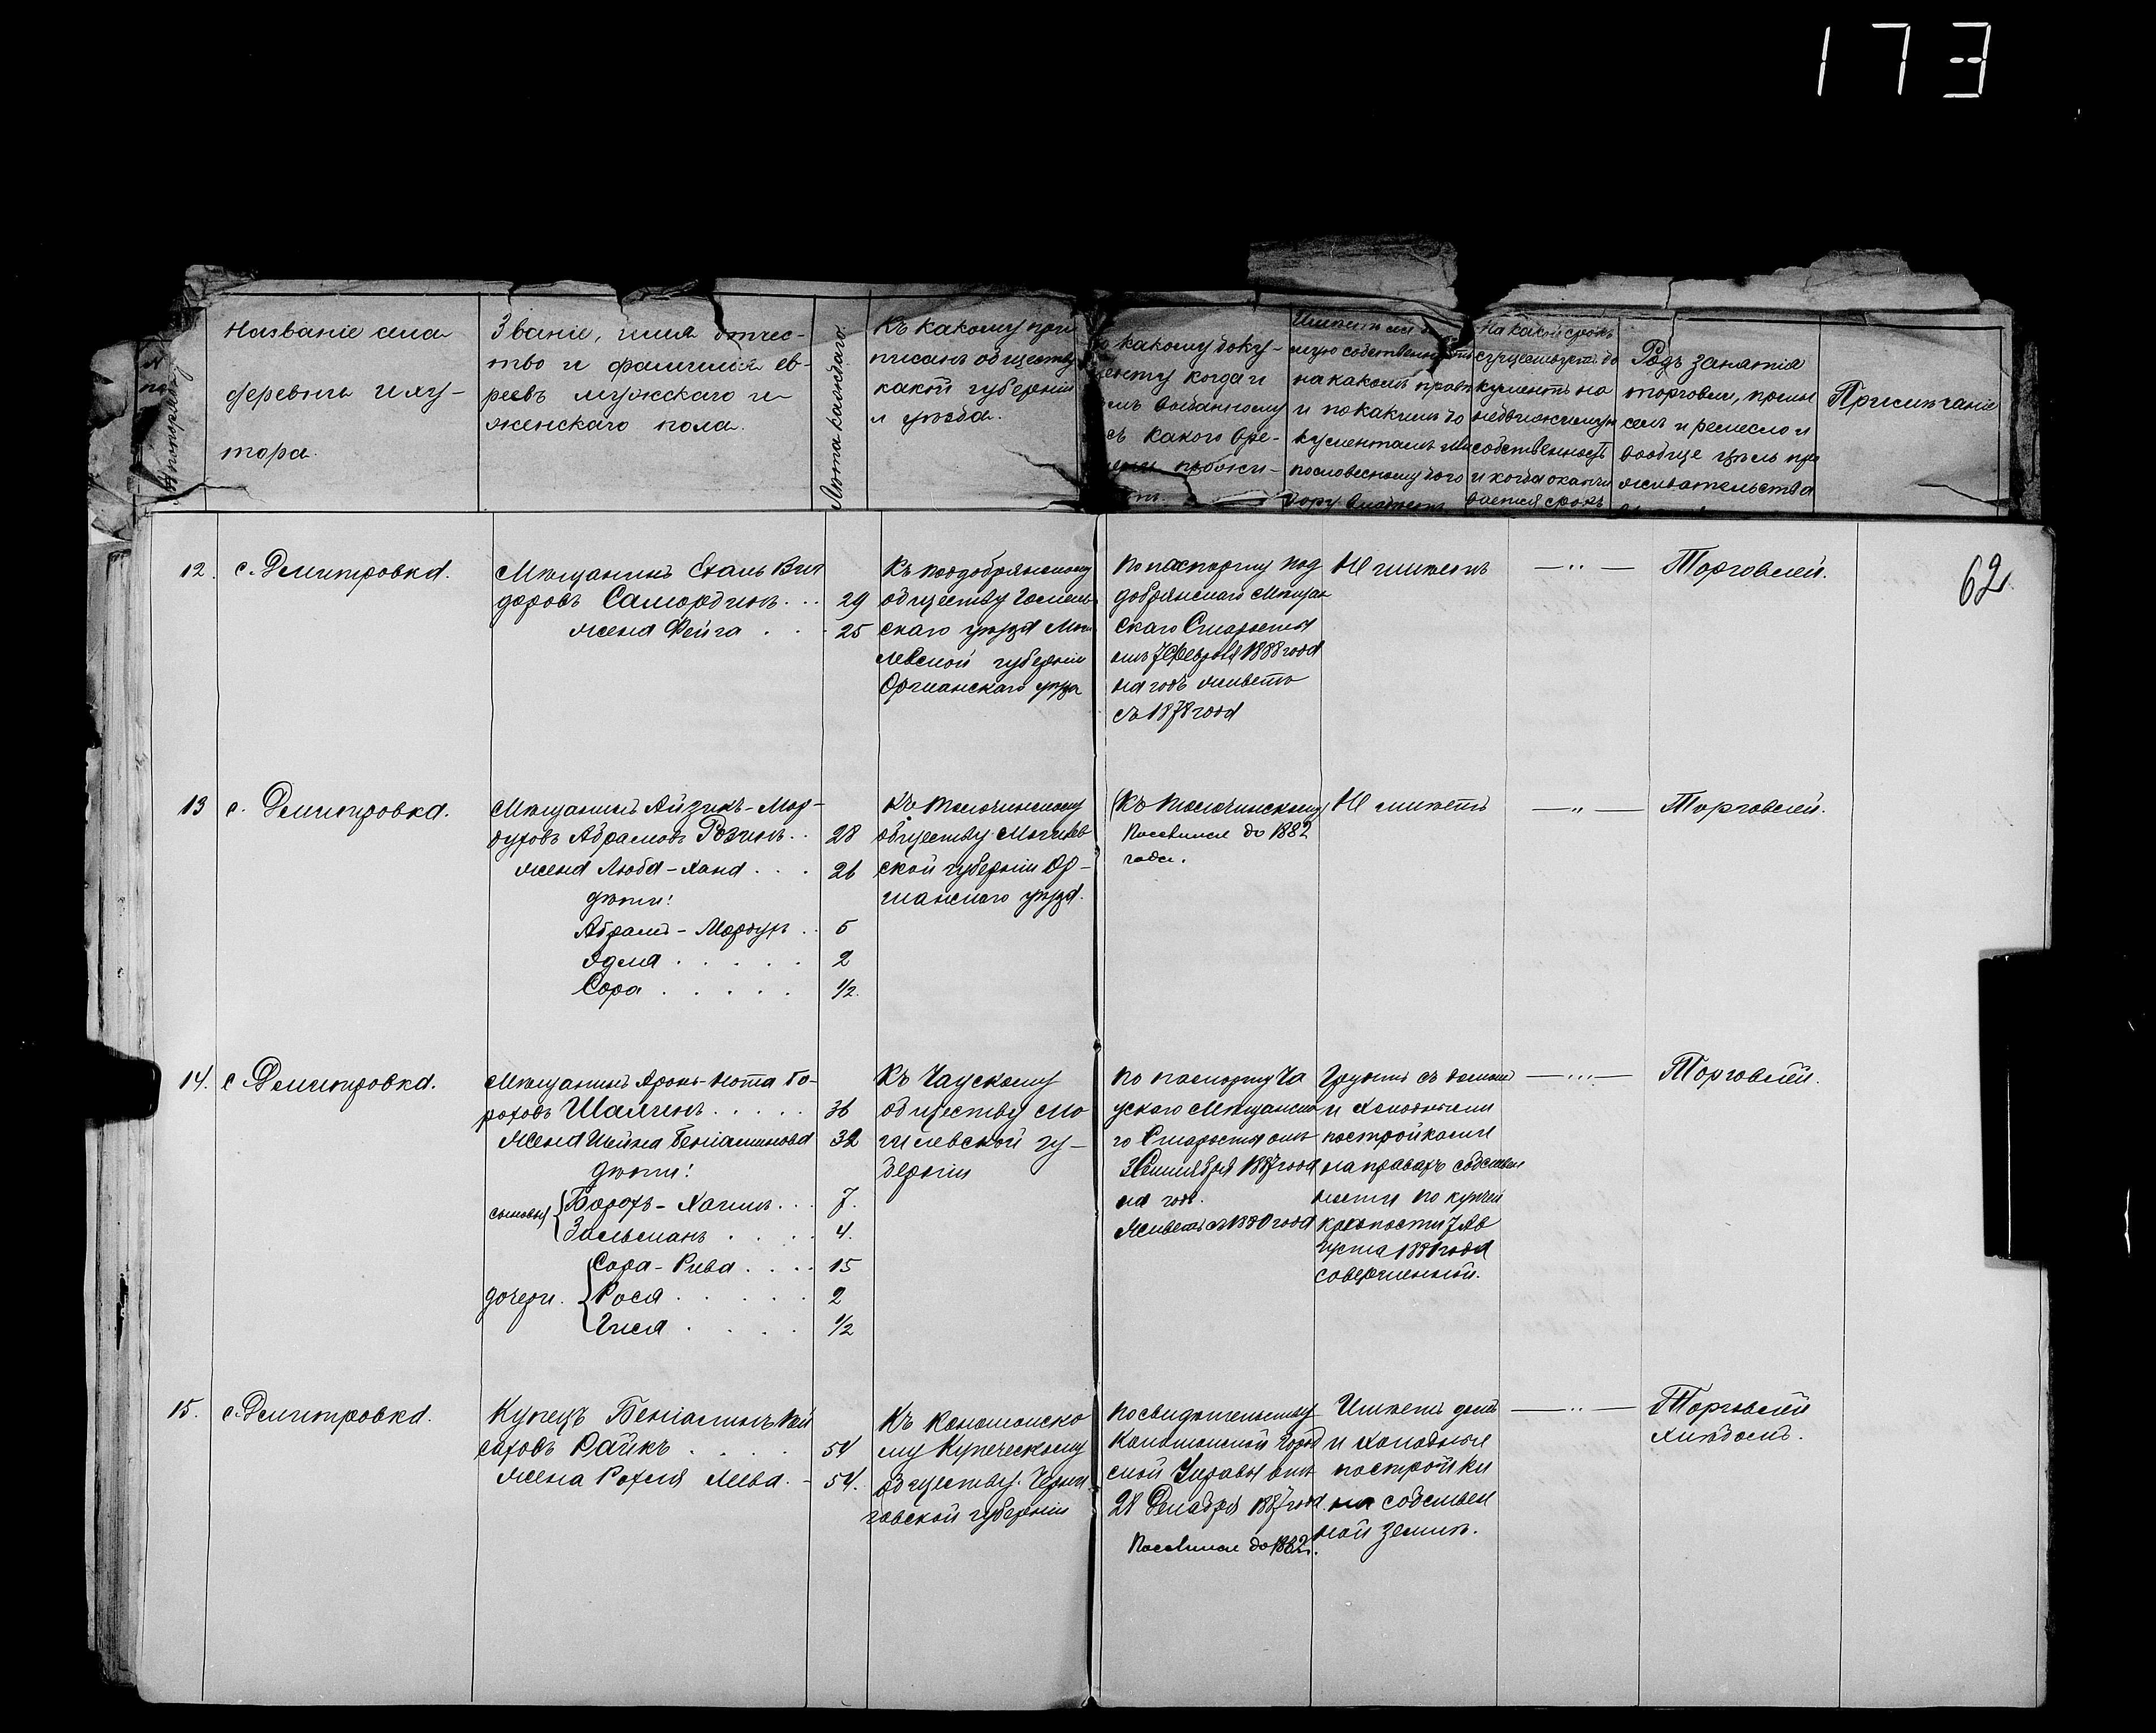 173
Названіе села
деревни и ху-
тора.
Званіе, имя отчес-
тво и фамилія ев-
реевъ мужскаго и
женскаго пола.
Лѣта каждаго
Къ какому при
писанъ обществу
какой губерніи
и уѣзда.
По какому доку-
менту когда и
кѣмъ выданному
съ какого вре-
мени прожи-
Имѣетъ ли
мую собственность
на какомъ правѣ
и по какимъ до
кументамъ или
по словесному дого
вору владѣетъ
На какой срокъ
существуетъ до
кументъ на
недвижимую
собственность
и когда оканчи
вается срокъ
Родъ занятія
торговли, промы
селъ и ремесло и
вообще цѣль про
живательства
Примѣчаніе
62.
12. с. Дмитровка.
Мѣщанинъ
доровъ Самординъ. . . 29
жена Фейга . . . 25
Къ поддобрянскому
обществу Гомель
скаго уѣзда Моги
левской губерніи
Оршанскаго уѣзда
По паспорту под
добрянскаго Мѣщан
скаго Старосты
отъ 7 Февраля 1888 года
на годъ живетъ
съ 1878 года
Не имѣетъ
— „ —
Торговлей.
13 с. Дмитровка.
Мѣщанинъ Айзикъ-Мор-
духовъ Абрамовъ Розинъ. . 28
жена Люба-Хана . . . 26
дѣти:
Абрамъ-Мордухъ . . 5
2
Сора . . . . . ½.
Къ Толочинскому
обществу Могилев
ской губерніи Ор-
шанского уѣзда.
(Къ Толочинскому)
Поселился до 1882
года.
Не имѣетъ
— „ —
Торговлей.
14. с Дмитровка.
Мѣщанинъ Аронъ-Нота Бо-
роховъ . . . . . 36
жена Шейна Беніаминова 32
дѣти:
сыновья { Борохъ-Хаимъ . . . 7.
Зальманъ . . . . 4.
дочери. { Сора-Рива . . . . 15
Рося . . . . . 2
. . . . ½
Къ Чаускому
обществу Мо
гилевской гу-
берніи
по паспорту Ча
ускаго Мѣщанска
го Старосты отъ
3 Сентября 1887 года
на годъ.
Живетъ съ 1880 года
Грунтъ съ домомъ
и холодными
постройками
на правахъ собствен
ности по купчей
крѣпости 7 Ав
густа 1881 года
совершенной.
— „ —
Торговлей.
15. с. Дмитровка.
Купецъ Беніаминъ
саховъ Райкъ . . . . 54
жена Рохля Лева. - 54.
Къ Конотопско
му Купеческому
обществу Черни
говской губерніи
по свидѣтельству
Конотопской Город
ской Управы отъ
28 Декабря 1887 года
Поселился до 1882г.
Имѣетъ домъ
и холодныя
постройки
на собствен
ной землѣ.
— „ —
Торговлей
хлѣбомъ.